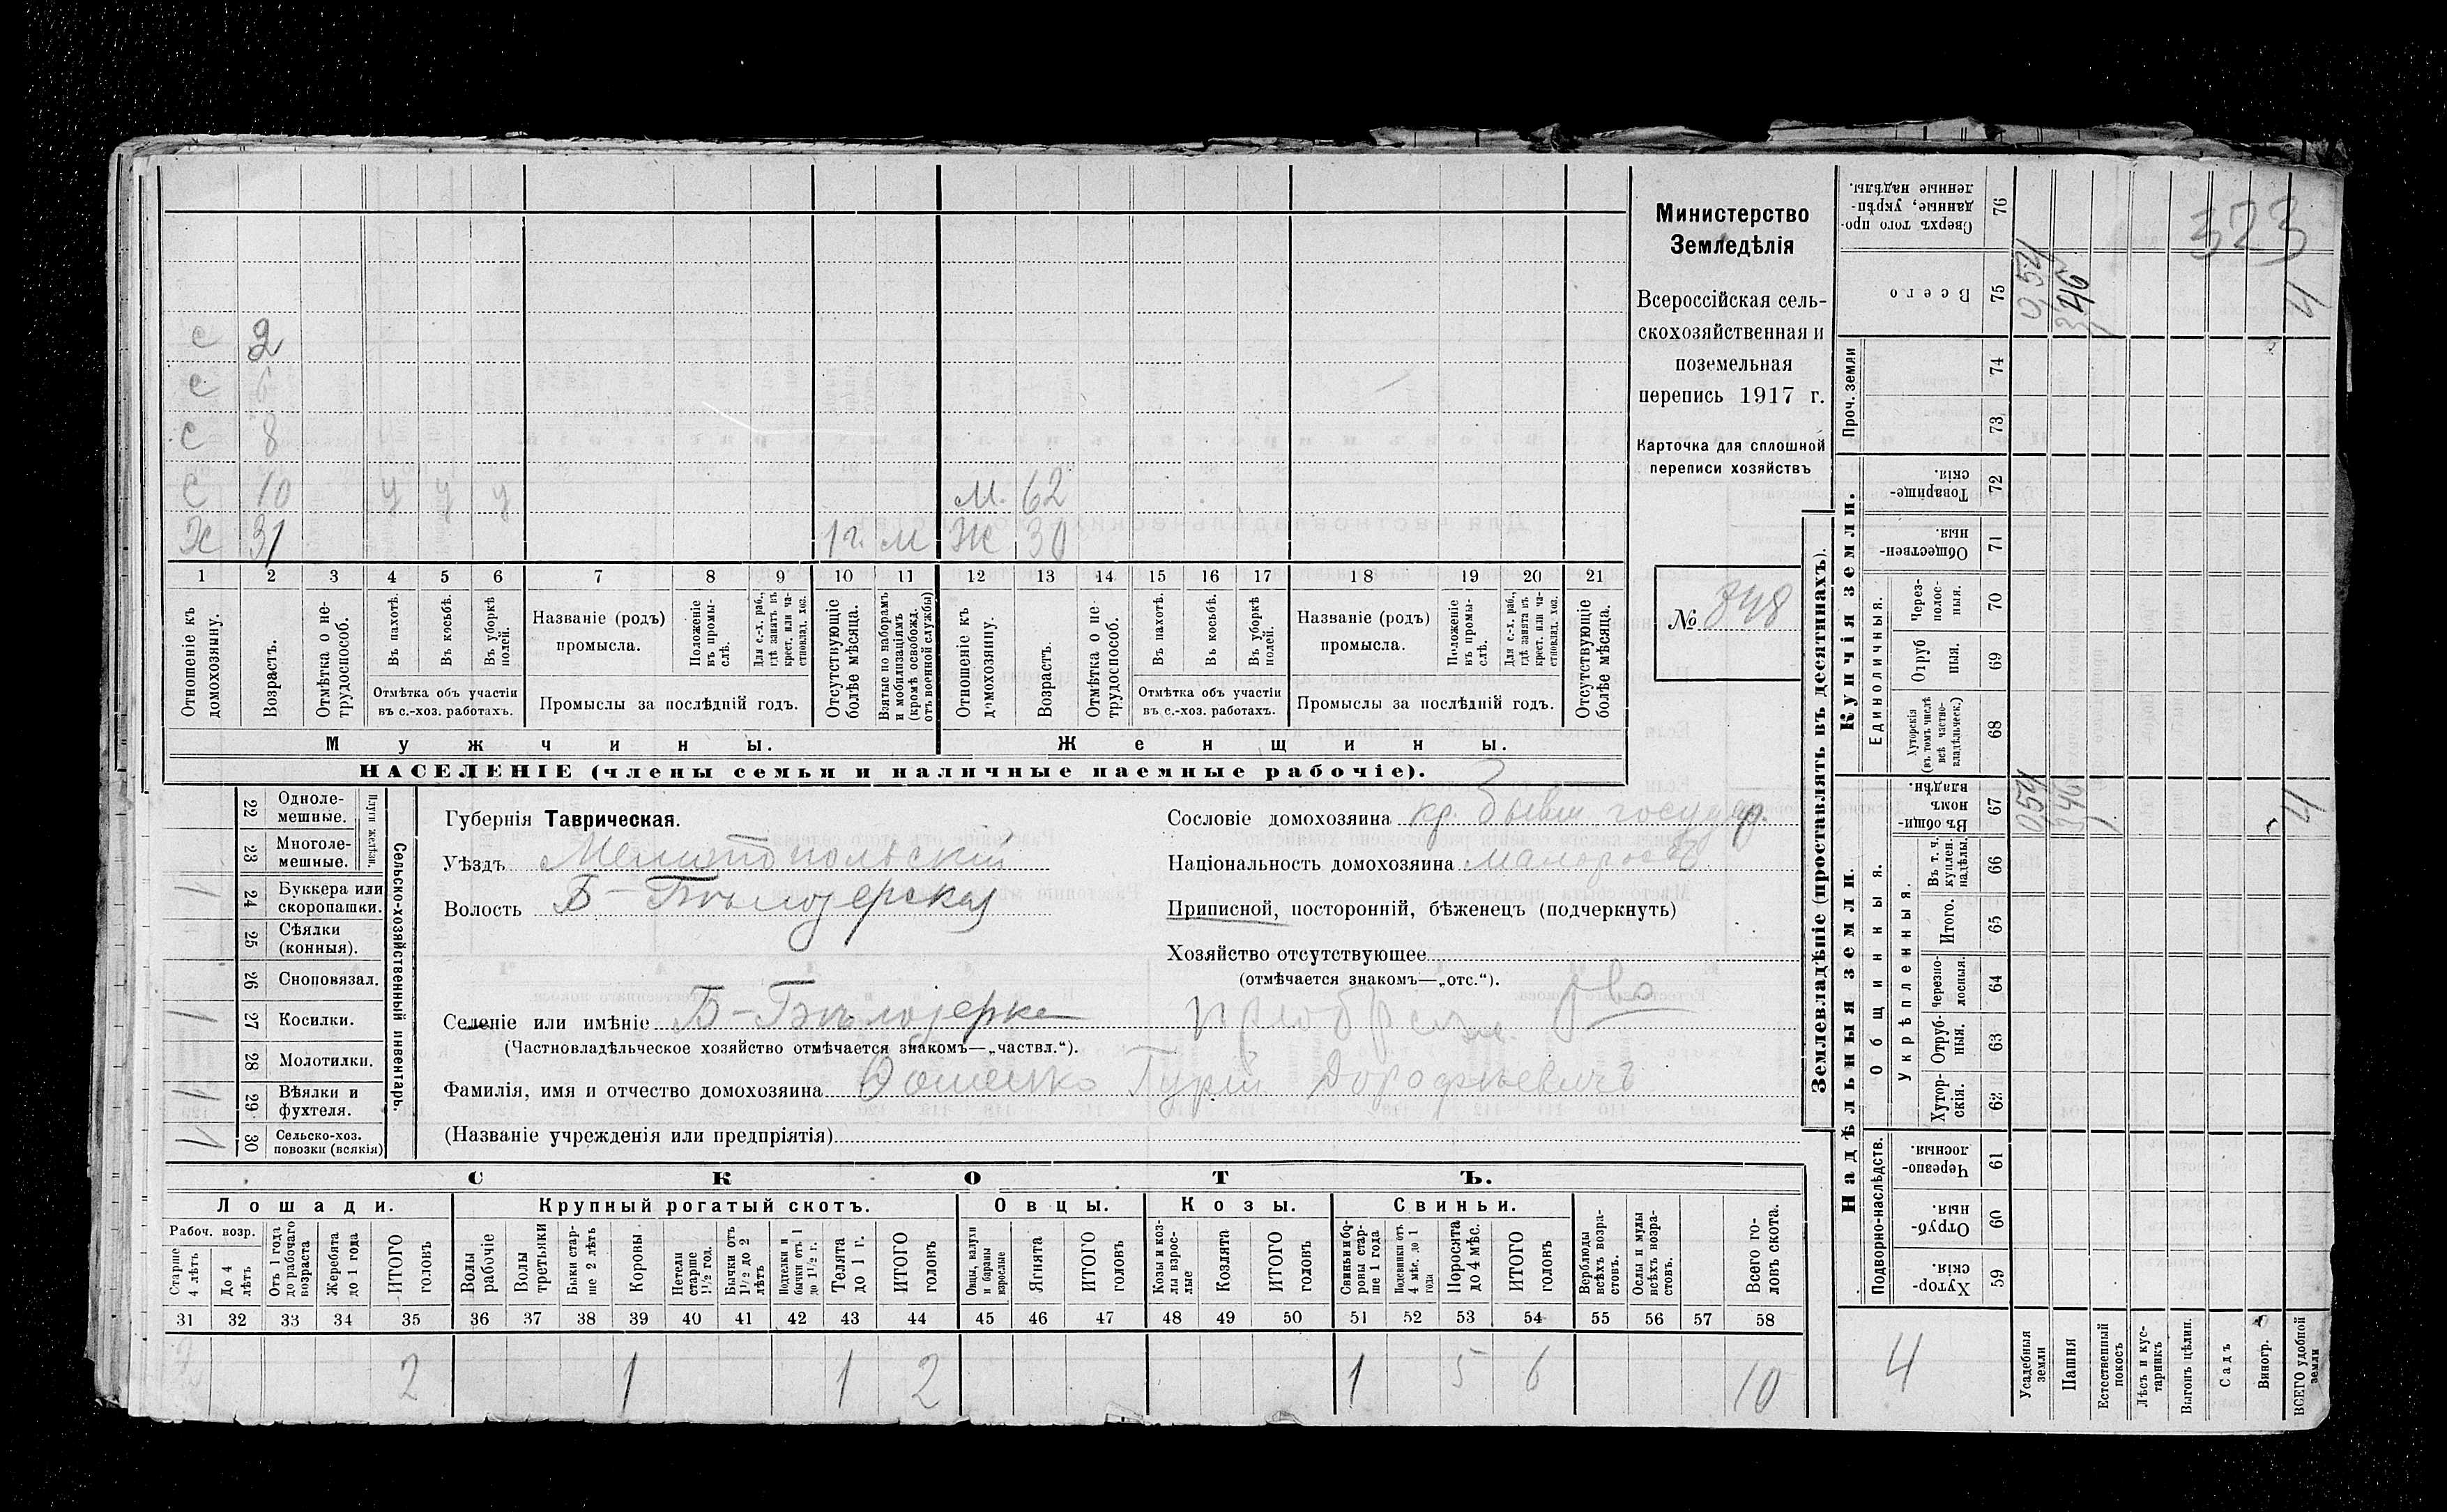 323
Министерство
Земледѣлія
Всероссійская сель-
скохозяйственная и
поземельная
перепись 1917 г.
Карточка для сплошной
переписи хозяйствъ
№ 348
с 2
с 6
с 8
с 10 у у у м. 62
Х 31 1 г. м Ж 30
1 2 3 4 5 6 7 8 9 10 11 12 13 14 15 16 17 18 19 20 21
Отношеніе къ домохозяину.
Возрастъ.
Отмѣтка о не-трудоспособ.
Въ пахотѣ.
Въ косьбѣ.
Въ уборкѣ полей.
Отмѣтка объ участіи
въ с.-хоз. работахъ.
Названіе (родъ)
промысла.
Положеніе въ промы-слѣ.
Для с.-х. раб., гдѣ занятъ въ крест. или ча-стновлад. хоз.
Промыслы за послѣдній годъ.
Отсутствующіе болѣе мѣсяца.
Взятые по наборамъ и мобилизаціямъ (кромѣ освобожд. отъ военной службы)
Отношеніе къ домохозяину.
Возрастъ.
Отмѣтка о не-трудоспособ.
Въ пахотѣ.
Въ косьбѣ.
Въ уборкѣ полей.
Отмѣтка объ участіи
въ с.-хоз. работахъ.
Названіе (родъ)
промысла.
Положеніе въ промы-слѣ.
Для с.-х. раб., гдѣ занята въ крест. или ча-стновлад. хоз.
Промыслы за послѣдній годъ.
Отсутствующіе болѣе мѣсяца.
Мужчины. Женщины.
НАСЕЛЕНІЕ (члены семьи и наличные наемные рабочіе).
Сельско-хозяйственный инвентарь.
Плуги желѣзн.
22 Одноле-мешные.
23 Многоле-мешные.
24 Буккера или скоропашки.
25 Сѣялки (конныя).
26 Сноповязал.
27 Косилки.
28 Молотилки.
29 Вѣялки и фухтеля.
30 Сельско-хоз. повозки (всякія)
Губернія Таврическая.
Уѣздъ Мелитопольскій
Волость Б-Бѣлозерская
Селеніе или имѣніе Б-Бѣлозерка
(Частновладѣльческое хозяйство отмѣчается знакомъ—„частвл.“).
Фамилія, имя и отчество домохозяина Гурій Дорофѣевичъ
(Названіе учрежденія или предпріятія)
Сословіе домохозяина кр. бывш государ.
Національность домохозяина малороссъ
Приписной, посторонній, бѣженецъ (подчеркнуть)
Хозяйство отсутствующее
(отмѣчается знакомъ—„отс.“).
СКОТЪ.
Лошади. Крупный рогатый скотъ. Овцы. Козы. Свиньи.
Рабоч. возр.
Старше 4 лѣтъ
До 4 лѣтъ
Отъ 1 года до рабочаго возраста
Жеребята до 1 года
ИТОГО головъ
Волы рабочіе
Волы третьяки
Быки стар-ше 2 лѣтъ
Коровы
Нетели старше 1½ год.
Бычки отъ 1½ до 2 лѣтъ
Подтелки и бычки отъ 1 до 1½ г.
Телята до 1 г.
ИТОГО головъ
Овцы, валухи и бараны взрослые
Ягнята
ИТОГО головъ
Козы и коз-лы взрос-лые
Козлята
ИТОГО головъ
Свиньи и бо-ровы стар-ше 1 года
Подсвинки отъ 4 мѣс. до 1 года
Поросята до 4 мѣс.
ИТОГО головъ
Верблюды всѣхъ возра-стовъ.
Ослы и мулы всѣхъ возра-стовъ.
Всего го-ловъ скота.
31 32 33 34 35 36 37 38 39 40 41 42 43 44 45 46 47 48 49 50 51 52 53 54 55 56 57 58
2 1 1 2 1 5 6 10
Землевладѣніе (проставлять въ десятинахъ).
Надѣльныя земли. Купчія земли. Проч. земли
Подворно-наслѣдств. Общинныя. Укрѣпленныя. Единоличныя.
59 Хутор-скія.
60 Отруб-ныя.
61 Черезпо-лосныя.
62 Хутор-скія.
63 Отруб-ныя.
64 Черезпо-лосныя.
65 Итого.
66 Въ т. ч. куплен. надѣлы.
67 Въ общи-номъ владѣн.
68 Хуторскія (въ томъ числѣ всѣ частно-владѣльческ.)
69 Отруб ныя.
70 Через-полос-ныя.
71 Обществен-ныя.
72 Товарище-скія.
73
74
75 Всего
76 Сверхъ того про-данные, укрѣп-ленные надѣлы.
Усадебныя земли
Пашня
Естественный покосъ
Лѣсъ и кус-тарникъ
Выгонъ цѣлин.
Садъ
Виногр.
ВСЕГО удобной земли
0,54 3,46 4
0,54 3,46 4
4